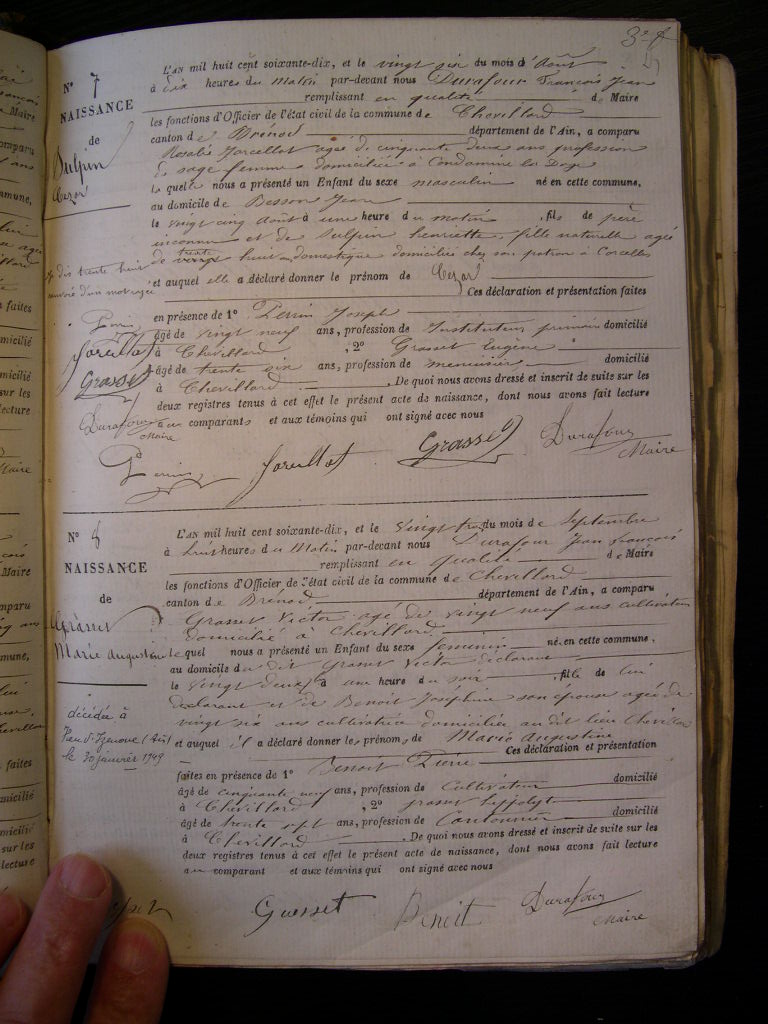 3e f
N° 7
NAISSANCE
de
Sulpin
Cezar
L'AN mil huit cent soixante-dix, et le vingt six du mois d'Août
à dix heures du Matin par-devant nous Durafour François Jean
remplissant en qualité de Maire
les fonctions d'Officier de l'état civil de la commune de Chevillard
canton de Brénod département de l'Ain, a comparu
Rosalie Forcellot agée de cinquante deux ans profession
de sage femme domiciliée à Condamine la Doye
la quelle nous a présenté un Enfant du sexe masculin né en cette commune,
au domicile de Besson Jean
le vingt cinq août à une heure du matin , fils de père
inconnu et de Sulpin henriette, fille naturelle agée
de vingt trente huit ans domestique domiciliée chez son patron à Corcelles
Je dis trente huit
et auquel elle a déclaré donner le prénom de Cezar
Ces déclaration et présentation faites
en présence de 1° Perrin Joseph
âgé de vingt neuf ans, profession de Instituteur primaire domicilié
à Chevillard , 2° Grasset Eugène
âgé de trente six ans, profession de menuisier domicilié
à Chevillard . De quoi nous avons dressé et inscrit de suite sur les
deux registres tenus à cet effet le présent acte de naissance, dont nous avons fait lecture
aux comparants et aux témoins qui ont signé avec nous
Perrin
Forcellot
Grasset
Durafour
Maire
Perrin Forcellot Grasset Durafour
Maire
N° 8
NAISSANCE
de
Grasset
Marie Augustine
décédée à
le 30 janvier 1949
L'AN mil huit cent soixante-dix, et le vingt trois du mois de Septembre
à huit heures du Matin par-devant nous Durafour Jean François
remplissant en qualité de Maire
les fonctions d'Officier de l'état civil de la commune de Chevillard
canton de Brénod département de l'Ain, a comparu
Grasset Victor agé de vingt neuf ans cultivateur
domicilié à Chevillard
lequel nous a présenté un Enfant du sexe feminin né en cette commune,
au domicile du dit Grasset Victor déclarant
le vingt deux à une heure du soir , fille de lui
déclarant et de Benoit Joséphine son épouse agée de
vingt six ans cultivatrice domiciliée au dit lieu Chevillard
et auquel il a déclaré donner les prénoms de Marie Augustine
Ces déclaration et présentation
faites en présence de 1° Benoit Pierre
âgé de cinquante neuf ans, profession de Cultivateur domicilié
à Chevillard , 2° grasset hippolyte
âgé de trente sept ans, profession de Cantonnier domicilié
à Chevillard . De quoi nous avons dressé et inscrit de suite sur les
deux registres tenus à cet effet le présent acte de naissance, dont nous avons fait lecture
au comparant et aux témoins qui ont signé avec nous
Grasset Benoit Durafour
Maire